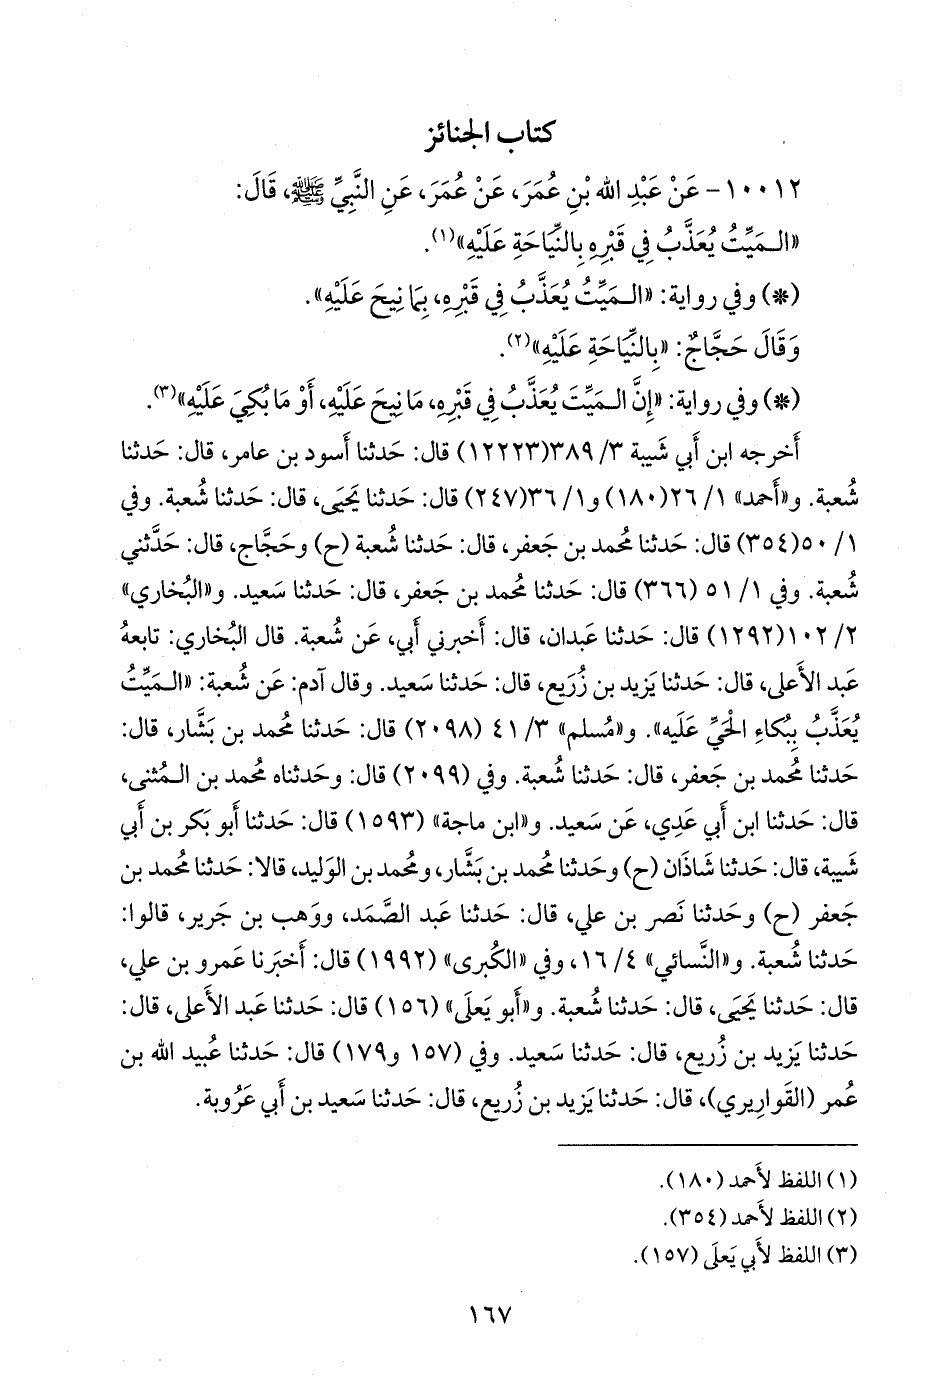 كتاب الجنائز
١٠٠١٢- عَنْ عَبْدِ الله بْنِ عُمَرَ، عَنْ عُمَرَ، عَنِ النَّبِيِّ ﷺ، قَالَ:
«الـمَيِّتُ يُعَذَّبُ فِي قَبْرِهِ بِالنِّيَاحَةِ عَلَيْهِ»(١).
(*) وفي رواية: «الـمَيِّتُ يُعَذَّبُ فِي قَبْرِهِ، بِمَا نِيحَ عَلَيْهِ».
وَقَالَ حَجَّاجٌ: «بِالنِّيَاحَةِ عَلَيْهِ»(٢).
(*) وفي رواية: «إِنَّ الـمَيِّتَ يُعَذَّبُ فِي قَبْرِهِ، مَا نِيحَ عَلَيْهِ، أَوْ مَا بُكِيَ عَلَيْهِ»(٣).
أَخرجه ابن أَبي شَيبة ٣/ ٣٨٩(١٢٢٢٣) قال: حَدثنا أَسود بن عامر، قال: حَدثنا
شُعبة. و«أَحمد» ١/ ٢٦(١٨٠) و١/ ٣٦(٢٤٧) قال: حَدثنا يَحيَى، قال: حَدثنا شُعبة. وفي
١/ ٥٠(٣٥٤) قال: حَدثنا مُحمد بن جَعفر، قال: حَدثنا شُعبة (ح) وحَجَّاج، قال: حَدَّثني
شُعبة. وفي ١/ ٥١ (٣٦٦) قال: حَدثنا مُحمد بن جَعفر، قال: حَدثنا سَعيد. و«البُخاري»
٢/ ١٠٢(١٢٩٢) قال: حَدثنا عَبدان، قال: أَخبرني أَبي، عَن شُعبة. قال البُخاري: تابعهُ
عَبد الأَعلى، قال: حَدثنا يَزيد بن زُرَيع، قال: حَدثنا سَعيد. وقال آدم: عَن شُعبة: «الـمَيِّتُ
يُعَذَّبُ بِبُكاءِ الْحَيِّ عَلَيه». و«مُسلم» ٣/ ٤١ (٢٠٩٨) قال: حَدثنا مُحمد بن بَشَّار، قال:
حَدثنا مُحمد بن جَعفر، قال: حَدثنا شُعبة. وفي (٢٠٩٩) قال: وحَدثناه مُحمد بن الـمُثنى،
قال: حَدثنا ابن أَبي عَدِي، عَن سَعيد. و«ابن ماجة» (١٥٩٣) قال: حَدثنا أَبو بَكر بن أَبي
شَيبة، قال: حَدثنا شَاذَان (ح) وحَدثنا مُحمد بن بَشَّار، ومُحمد بن الوَليد، قالا: حَدثنا مُحمد بن
جَعفر (ح) وحَدثنا نَصر بن علي، قال: حَدثنا عَبد الصَّمَد، ووَهب بن جَرير، قالوا:
حَدثنا شُعبة. و«النَّسائي» ٤/ ١٦، وفي «الكُبرى» (١٩٩٢) قال: أَخبَرنا عَمرو بن علي،
قال: حَدثنا يَحيَى، قال: حَدثنا شُعبة. و«أَبو يَعلَى» (١٥٦) قال: حَدثنا عَبد الأَعلى، قال:
حَدثنا يَزيد بن زُريع، قال: حَدثنا سَعيد. وفي (١٥٧ و١٧٩) قال: حَدثنا عُبيد الله بن
عُمر (القَوارِيري)، قال: حَدثنا يَزيد بن زُريع، قال: حَدثنا سَعيد بن أَبي عَرُوبة.
(١) اللفظ لأَحمد (١٨٠).
(٢) اللفظ لأَحمد (٣٥٤).
(٣) اللفظ لأَبي يَعلَى (١٥٧).
١٦٧